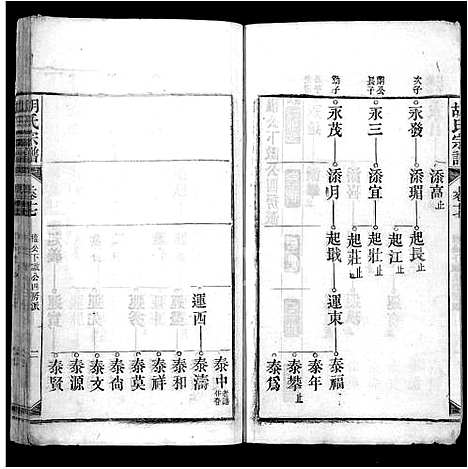 胡氏宗譜
卷七
添高止
次子
永發
添瑂
起長止
起江止
蘭公
長子
永三
添宜
起壯止
起莊止
永茂
添月
起戢
運東
泰福
泰年
泰攀止
泰爲
胡氏宗譜
卷七
公下誠公四房派
二
運西
泰中
泰濤
泰和
泰祥
泰莫
泰尚
泰文
泰源
泰賢